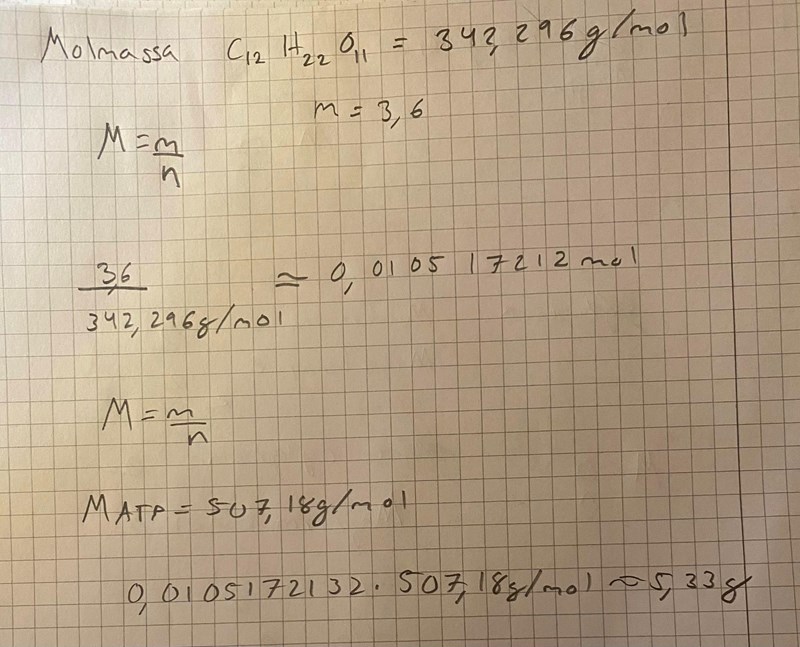 Molmassa C₁₂ H₂₂ O₁₁ = 342,296 g/mol
m = 3,6
M = m/n
3,6 / 342,296 g/mol ≈ 0,010517212 mol
M = m/n
M ATP = 507,18 g/mol
0,0105172132 · 507,18 g/mol ≈ 5,33 g